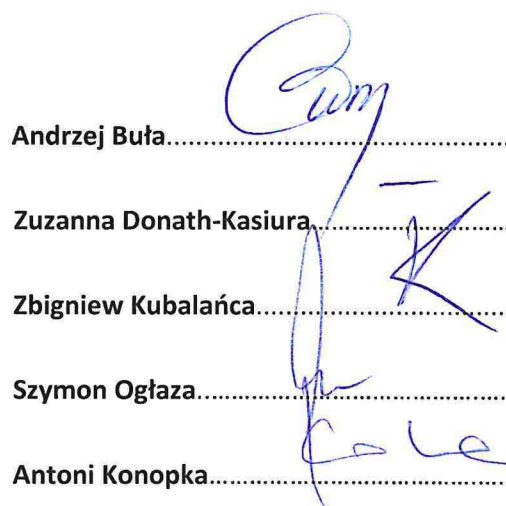 Andrzej Buła..............................................
Zuzanna Donath-Kasiura..........................
Zbigniew Kubalańca..................................
Szymon Ogłaza..........................................
Antoni Konopka........................................